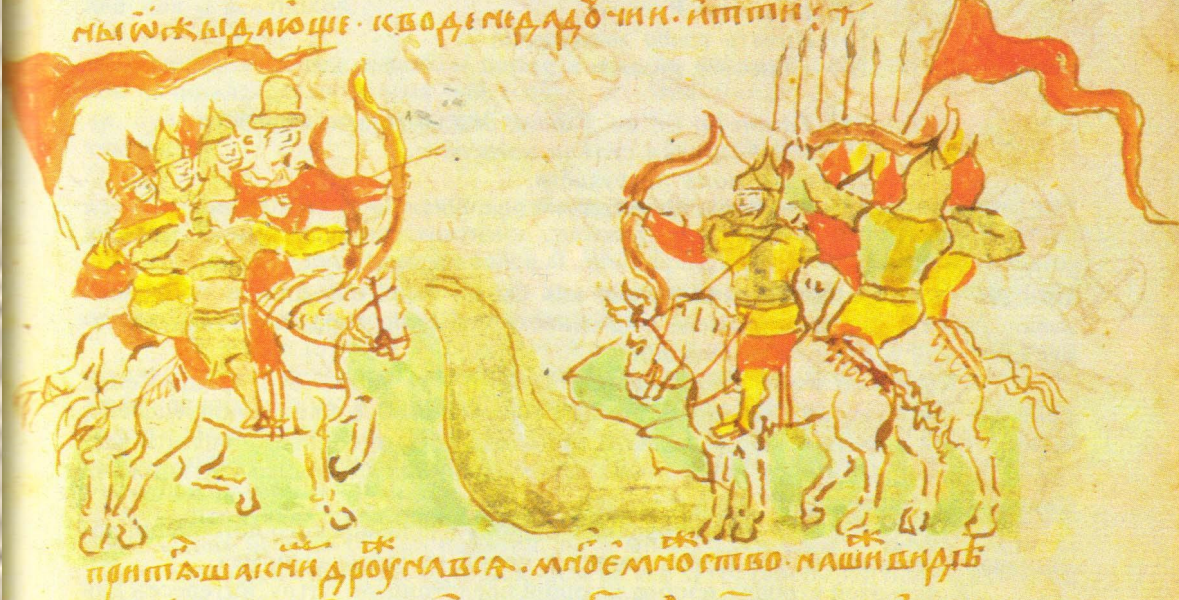 ны ѡжыдающе · к воде не дадѹчи и · итти ⁘
приспѣша к ни дроуж̾ина всѧ · мно́є множ̾ство · нашиж̾ видѣ